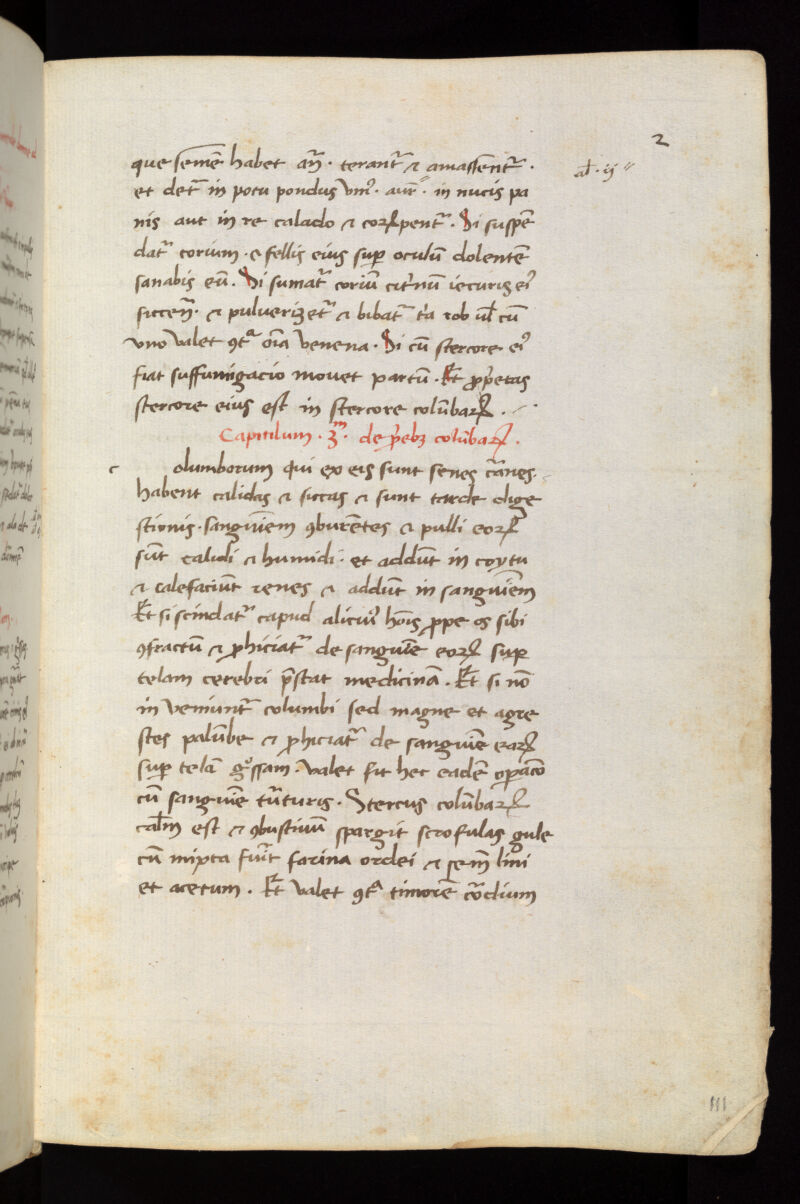 2
que semē habet añ. terant᷑ ⁊ amassent᷑.
al. ij
et det᷑ in potu pondus vni᷒. aur̃. in nucis pa
nis aut in re calado ⁊ Si suspē
dat᷑ corium ⁊ fellis eius sup oculū dolentē
sanabis eū. Si sumat᷑ coriū citrinū iecuris ei᷒
⁊ pulverizet᷑ ⁊ bibat᷑ rob ul cū
vno valet ꝯtᵃ oīa venena. Si cū stercore ei᷒
fiat suffumigacio movet partū. Et ꝓp̄etas
stercore eius est in stercore colūbaꝝ.
Capitulum .3ᵐ. de colūbaꝝ.
c
olumborum qui ex eis sunt senes cārnes.
habent calidas ⁊ siccas ⁊ sunt tarde dige
stionis. sanguinem ꝯburentes ⁊ pulli eoꝝ
sūt calidi ⁊ humidi. et addūt in coytu
⁊ calefaciūt renes ⁊ addūt in sanguinem
Et si scindat᷑ capud alicui᷒ hoīs ꝓpe os sibi
ꝯfractū ⁊ ꝓhiciat᷑ de sanguinē eoꝝ sup
telam cerebri p̄stat medicinā. Et si nō
in veniunt᷑ columbi sed magne et agre
stes palūbe ⁊ ꝓhiciat᷑ de sanguinē eaꝝ
sup telā gͦssam. valet sit hec eadē opacō
cū sanguinē tūrturis. Stercus colūbaꝝ
calm est ⁊ ꝯbustivum spargit scrofulas gule
cū mixta fuit farina ordei ⁊ sem̄ lini
et acetum. Et valet ꝯtᵃ timorē
III